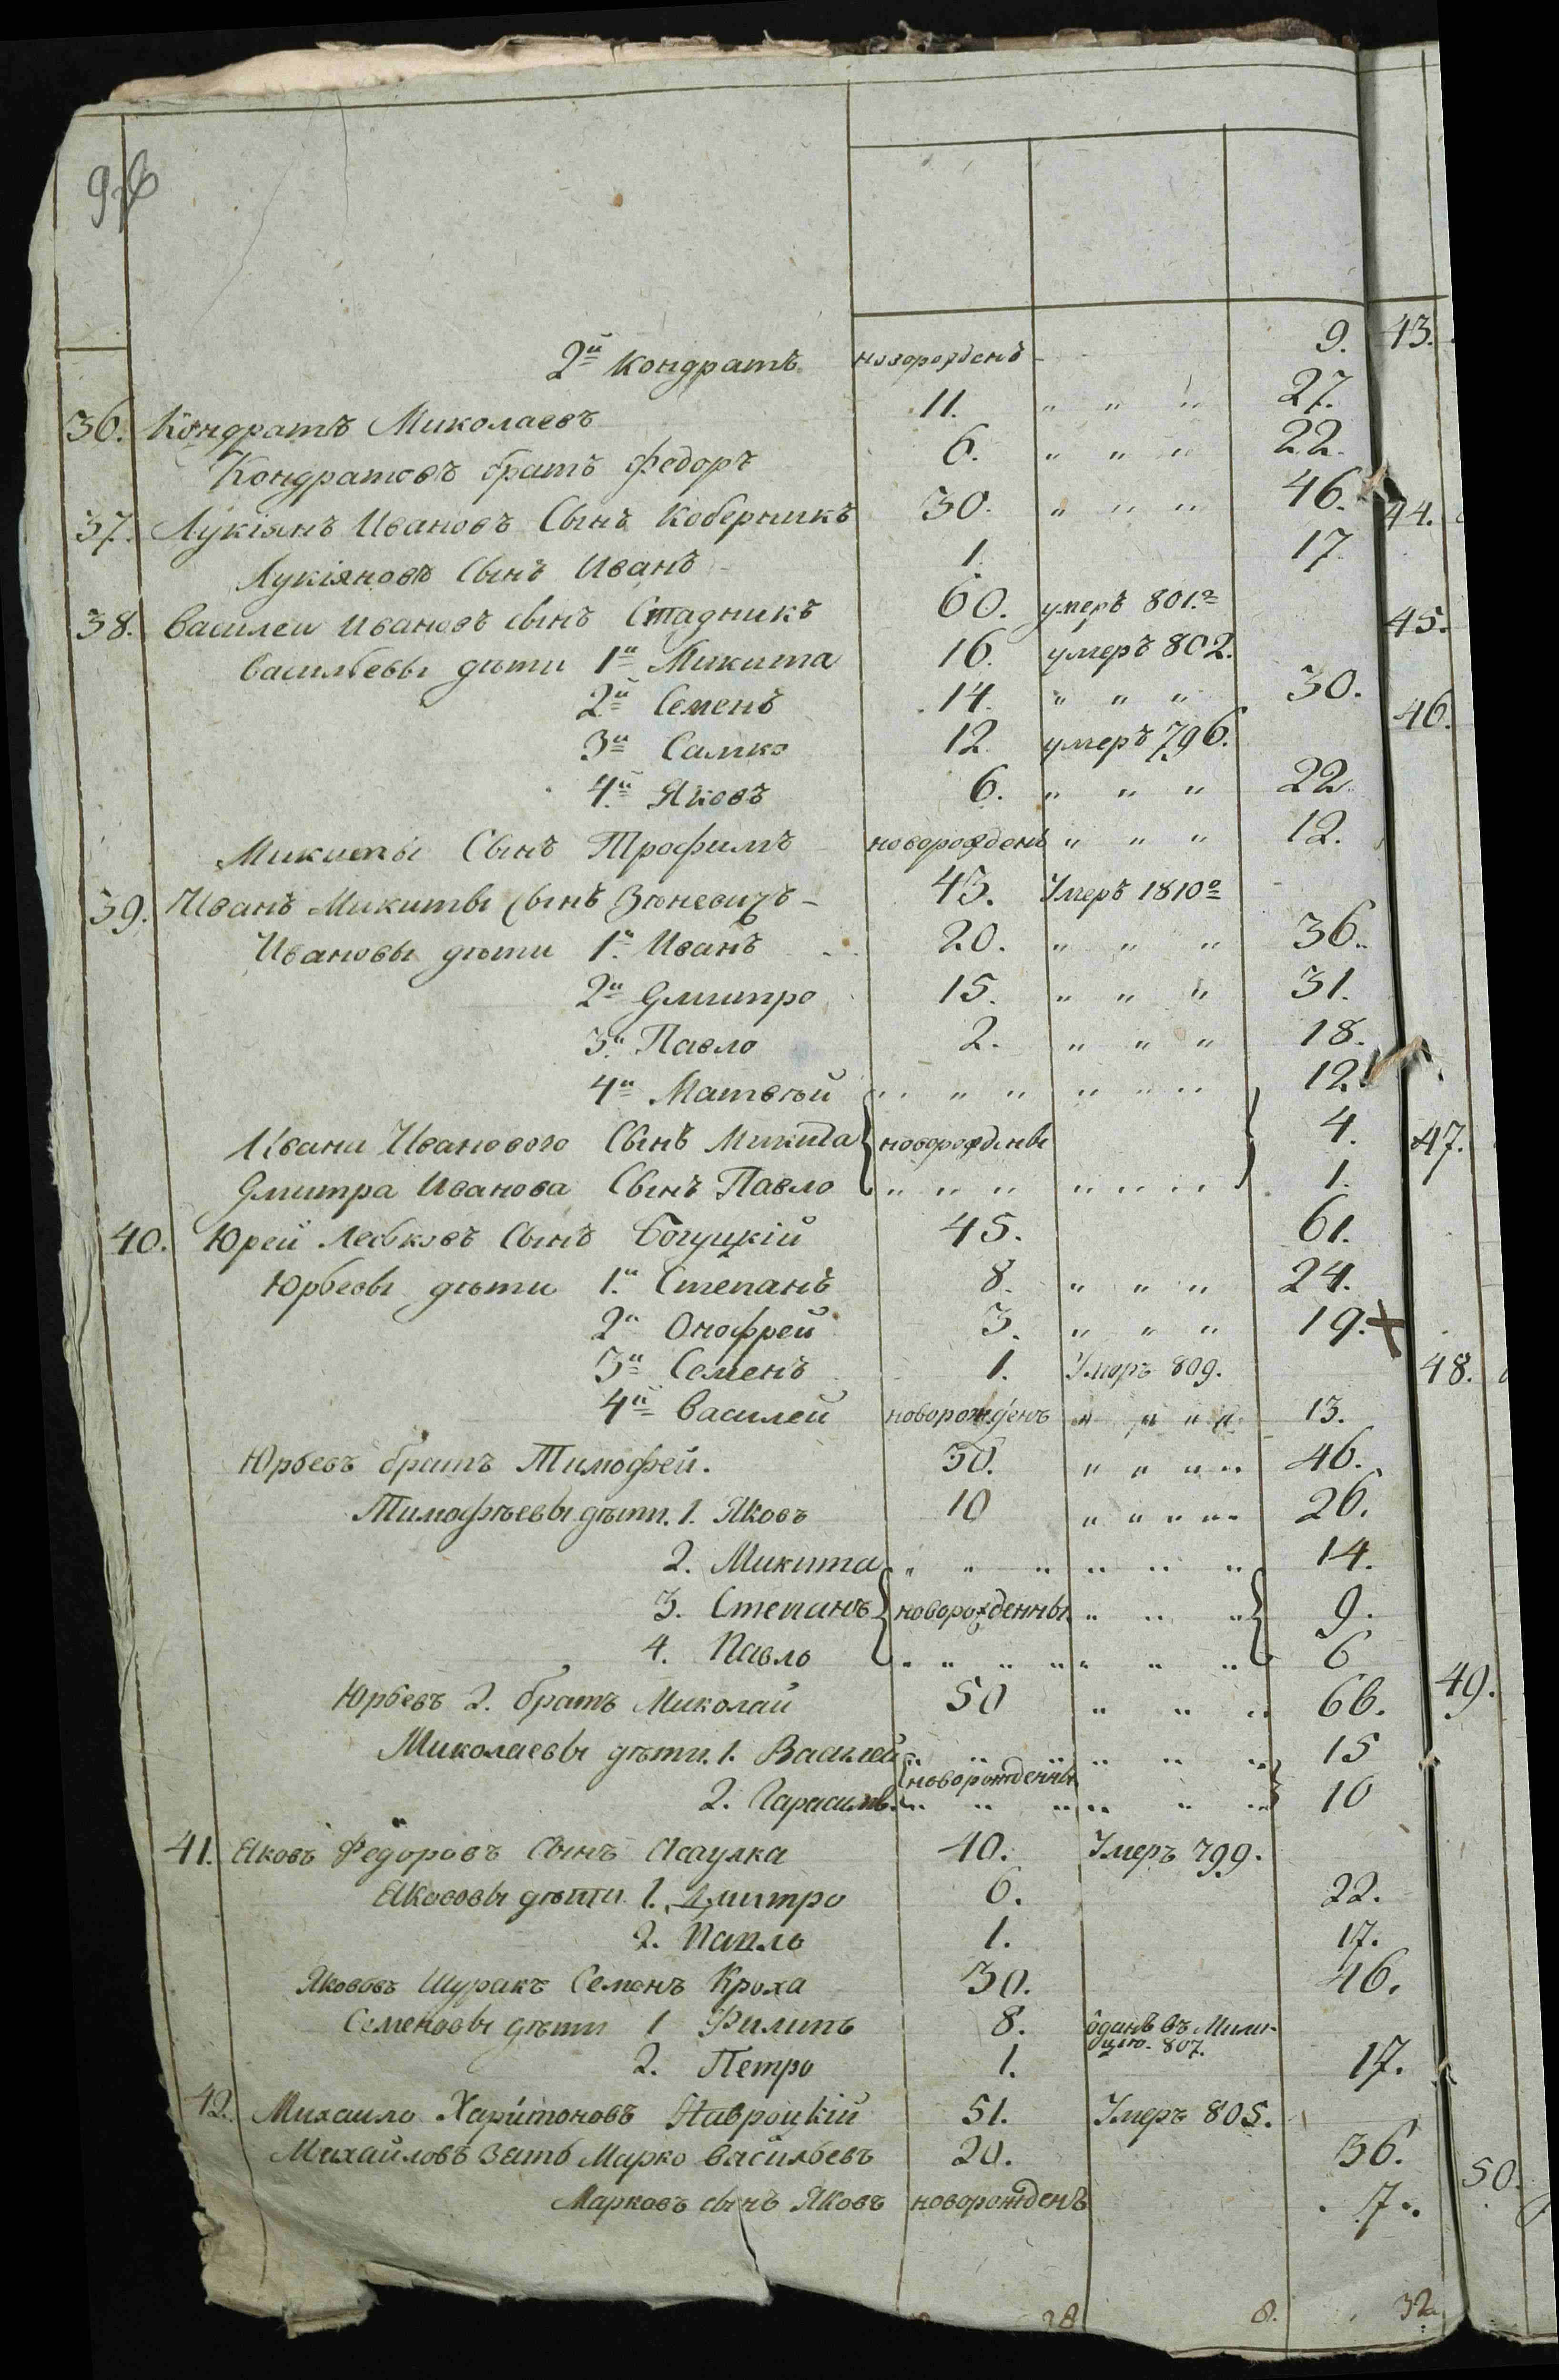 2й Кондратъ новорожденъ 9.
36. Кондратъ Миколаевъ 11. " " " 27.
Кондратовъ братъ Федоръ 6. " " " 22.
37. Лукіянъ Ивановъ Сынъ Коберникъ 30. " " " 46.
Лукіяновъ Сынъ Иванъ 1. 17
38. Василеи Ивановъ сынъ Стадникъ 60. умеръ 801.го
Васильевы дѣти 1й Микита 16. умеръ 802.
2й Семенъ 14. " " " 30.
3й Самко 12. умеръ 796.
4й Яковъ 6. " " " 22.
Микиты Сынъ Трофимъ новорожденъ " " " 12.
39. Иванъ Микиты Сынъ 43. Умеръ 1810го
Ивановы дѣти 1й Иванъ 20. " " " 36.
2й Дмитро 15. " " " 31.
3й Павло 2. " " " 18.
4й Матвѣй " " " " " " 12.
Ивана Иванового Сынъ Микита новорождены 4.
Дмитра Иванова Сынъ Павло " " " " " " " 1.
40. Юрей Леськовъ Сынъ Богуцкій 45. 61.
Юрьевы дѣти 1й Степанъ 8. " " " 24.
2й Онофрей 3. " " " 19.+
3й Семенъ 1. Умеръ 809.
4й Василей новорожденъ " " " " 13.
Юрьевъ братъ Тимофей. 30. " " " " 46.
Тимофѣевы дѣти. 1. Яковъ 10 " " " " " 26.
2. Микита " " " " " " 14.
3. Степанъ новорожденны " " " 9.
4. Павло " " " " " " " 6
Юрьевъ 2. братъ Миколай 50 " " " 66.
Миколаевы дѣти. 1. Василей " " " " " " 15
новорожденны
2. Гарасимъ " " " " " " 10
41. Яковъ Федоровъ Сынъ Асаулка 40. Умеръ 799.
Якововы дѣти 1. Дмитро 6. 22.
2. Павло 1. 17.
Якововъ Шуракъ Семенъ Кроха 30. 46.
Семеновы дѣти 1 Филипъ 8. одань въ Мили-
цію. 807.
2. Петро 1. 17.
42. Михаило Харитоновъ Навроцкій 51. Умеръ 805.
Михайловъ Зать Марко Васильевъ 20. 36.
Марковъ сынъ Яковъ новорожденъ 7.
28 8. 32
43.
44.
45.
46.
47.
48.
49.
50.